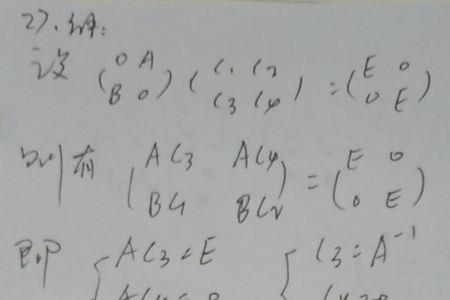 27. 解:
设 (0 A B 0) (C1 C2 C3 C4) = (E 0 0 E)
则有 (AC3 AC4 BC1 BC2) = (E 0 0 E)
即 { AC3 = E { C3 = A^-1